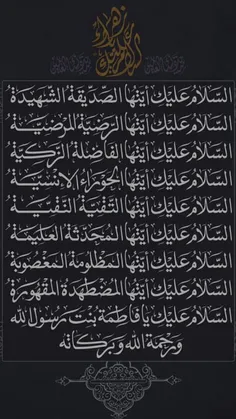 السَّلَامُ عَلَيْكِ أَيَّتُهَا الصِّدِّيقَةُ الشَّهِيدَةُ
السَّلَامُ عَلَيْكِ أَيَّتُهَا الرَّضِيَّةُ الْمَرْضِيَّةُ
السَّلَامُ عَلَيْكِ أَيَّتُهَا الْفَاضِلَةُ الزَّكِيَّةُ
السَّلَامُ عَلَيْكِ أَيَّتُهَا الْحَوْرَاءُ الْإِنْسِيَّةُ
السَّلَامُ عَلَيْكِ أَيَّتُهَا التَّقِيَّةُ النَّقِيَّةُ
السَّلَامُ عَلَيْكِ أَيَّتُهَا الْمُحَدَّثَةُ الْعَلِيمَةُ
السَّلَامُ عَلَيْكِ أَيَّتُهَا الْمَظْلُومَةُ الْمَغْصُوبَةُ
السَّلَامُ عَلَيْكِ أَيَّتُهَا الْمُضْطَهَدَةُ الْمَقْهُورَةُ
السَّلَامُ عَلَيْكِ يَا فَاطِمَةُ بِنْتَ رَسُولِ اللهِ
وَرَحْمَةُ اللهِ وَبَرَكَاتُهُ